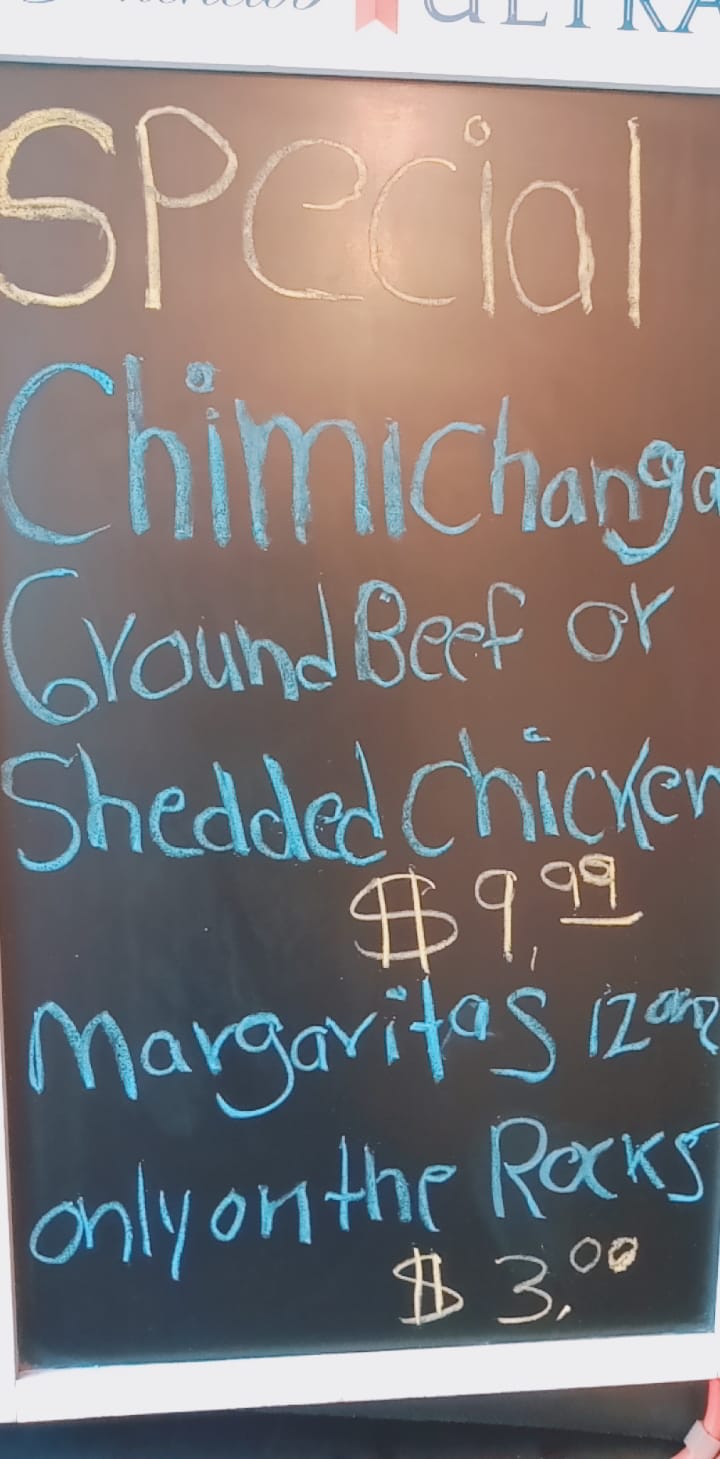 ULTRA
Special
Chimichanga
Ground Beef or
Shedded Chicken
$9.99
Margaritas 12 onz
only on the Rocks
$3.00